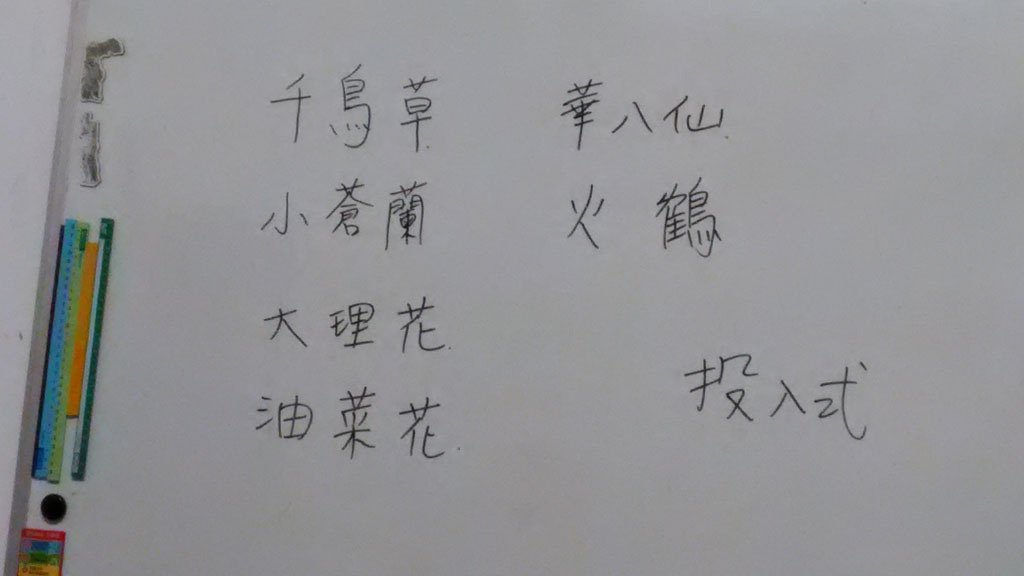 千鳥草
小蒼蘭
大理花
油菜花
華八仙
火鶴
投入式